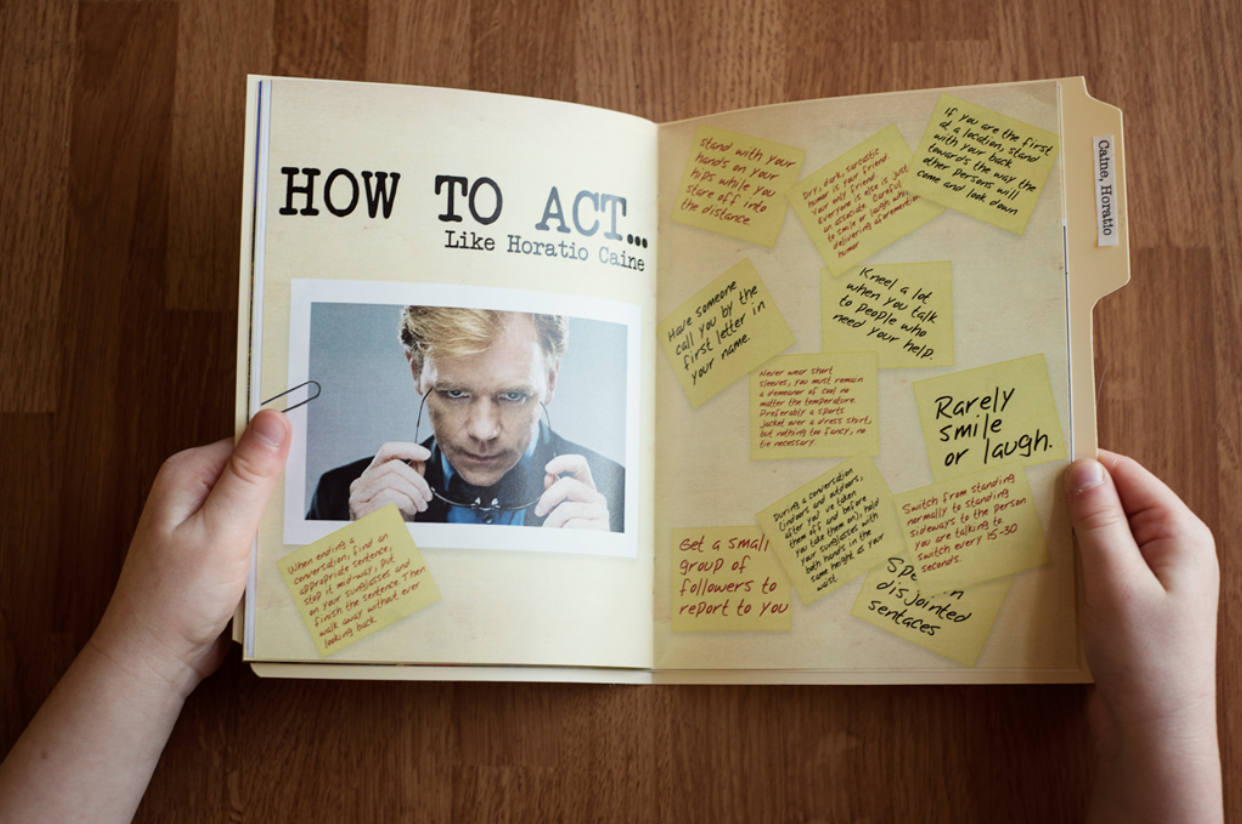 HOW TO ACT...
Like Horatio Caine
When ending a
conversation, find an
appropriate sentence,
stop it mid-way, put
on your sunglasses and
finish the sentence. Then
walk away without ever
looking back.
stand with your
hands on your
hips while you
stare off into
the distance.
Dry, dark, sarcastic
humor is your friend.
Your only friend.
Everyone else is just
an associate. Careful
to smile or laugh while
delivering aforementioned
humor
If you are the first
at a location, stand
with your back
towards the way the
other persons will
come and look down
Caine, Horatio
Have someone
call you by the
first letter in
your name.
Kneel a lot
when you talk
to people who
need your help.
Never wear short
sleeves, you must remain
a demeanor of cool no
matter the temperature.
Preferably a sports
jacket over a dress shirt,
but nothing too fancy, no
tie necessary.
Rarely
smile
or laugh.
Get a small
group of
followers to
report to you
During a conversation
(indoors and outdoors,
after you've taken
them off and before
you take them on), hold
your sunglasses with
both hands in the
same height as your
waist
Switch from standing
normally to standing
sideways to the person
you are talking to
switch every 15-30
seconds.
disjointed
sentaces